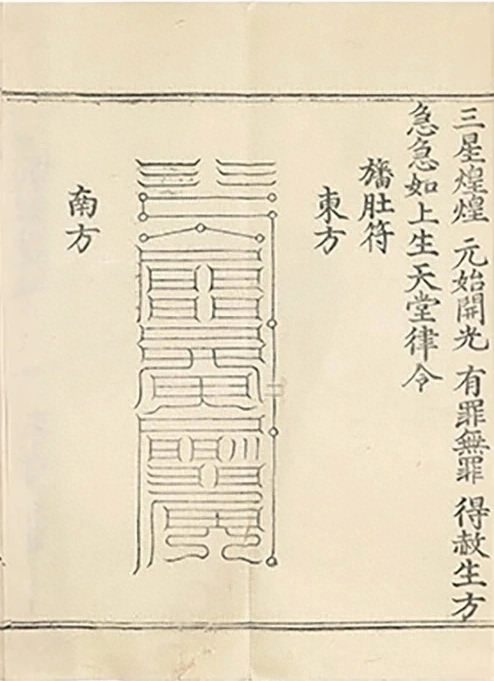 三星煌煌 元始開光 有罪無罪 得赦生方
急急如上生天堂律令
旛肚符
東方
南方